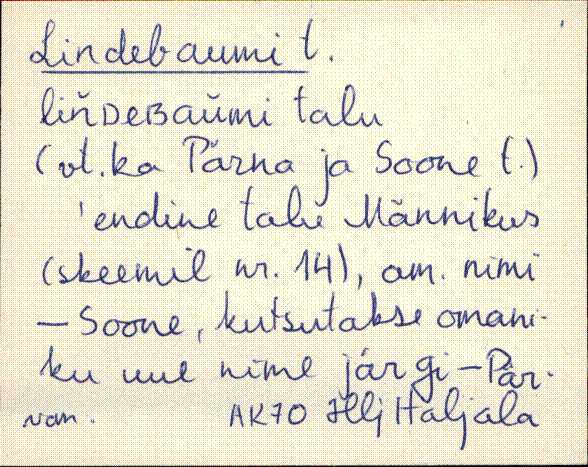 Lindebaumi t.
liňDEBAŭmi talu
(vt. ka Pärna ja Soone t.)
'endine talu Männikus
(skeemil nr. 14), am. nimi
– Soone, kutsutakse omani-
ku uue nime järgi – Pär-
nam. AK70 Hlj Haljala